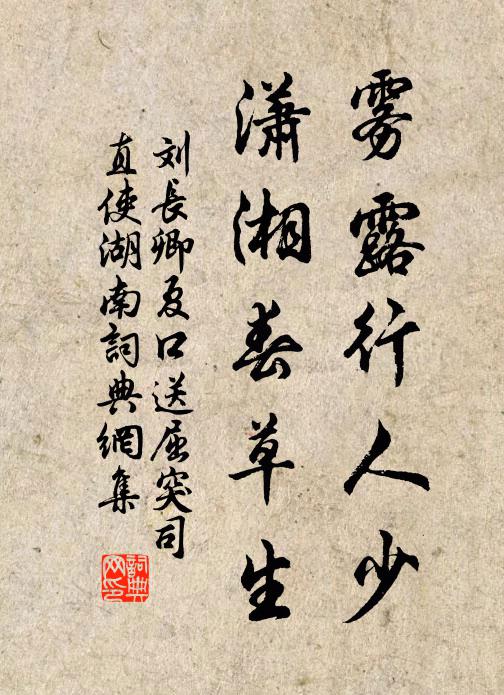 雾露行人少
潇湘春草生
刘長卿夏口送屈突司
直使湖南詞典網集
詞典网印